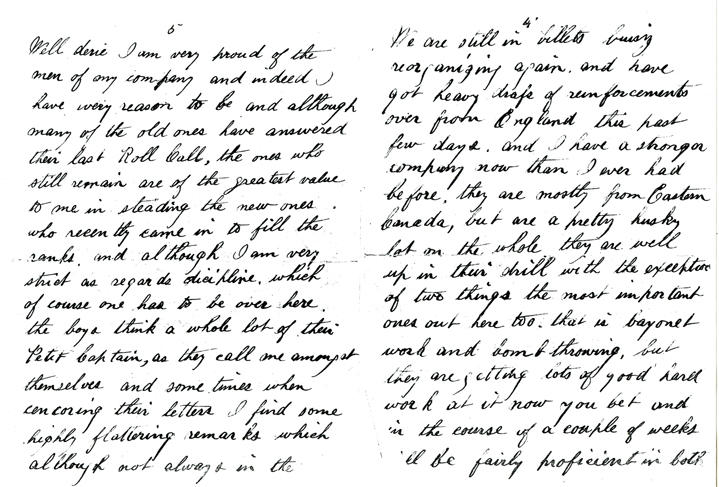 5
Well derie I am very proud of the
men of my company and indeed I
have every reason to be and although
many of the old ones have answered
their last Roll Call, the ones who
still remain are of the greatest value
to me in steading the new ones.
who recently came in to fill the
ranks. and although I am very
strict as regards dicipline. which
of course one has to be over here
the boys think a whole lot of their
Petit Captain, as they call me amongst
themselves and some times when
cencoring their letters I find some
highly flattering remarks which
although not always in the
4
We are still in billets buisy
reorganizing again. and have
got heavy drafs of reinforcements
over from England this past
few days. and I have a stronger
company now than I ever had
before. they are mostly from Eastern
Canada, but are a pretty husky
lot on the whole they are well
up in their drill with the exception
of two things the most important
ones out here too. that is bayonet
work and bomb throwing, but
they are getting lots of good hard
work at it now you bet and
in the course of a couple of weeks
'll be fairly proficient in both